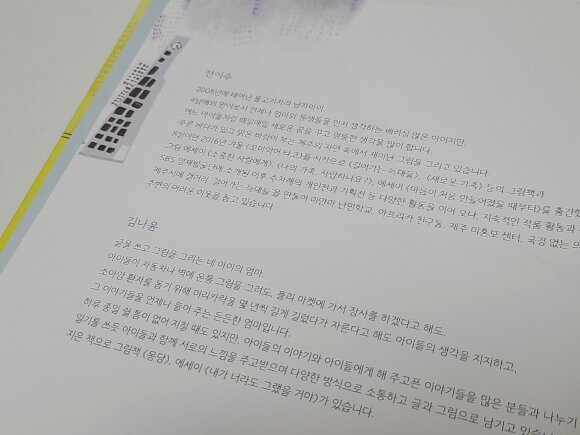 전이수
2008년에 태어난 물고기자리 남자아이.
4남매의 맏이로서 언제나 엄마와 동생들을 먼저 생각하는 배려심 많은 아이지만,
여느 아이들처럼 매일매일 새로운 꿈을 꾸고 엉뚱한 생각을 많이 합니다.
푸른 바다가 있고 맑은 바람이 부는 제주의 자연 속에서 재미난 그림을 그리고 있습니다.
8살이던 2016년 겨울 〈꼬마악어 타코〉를 시작으로 〈걸어가는 늑대들〉, 〈새로운 가족〉 등의 그림책과
그림 에세이 〈소중한 사람에게〉, 〈나의 가족, 사랑하나요?〉, 에세이 〈마음이 처음 만들어졌을 때부터〉를 출간했
SBS 영재발굴단에 소개된 이후 수차례의 개인전과 기획전 등 다양한 활동을 이어 오다, 지속적인 작품 활동과
제주시에 갤러리 '걸어가는 늑대들'을 만들어 미얀마 난민학교, 아프리카 친구들, 제주 미혼모 센터, 국경 없는 의
주변의 어려운 이웃을 돕고 있습니다.
김나윤
글을 쓰고 그림을 그리는 네 아이의 엄마.
아이들이 자동차나 벽에 온통 그림을 그려도, 플리 마켓에 가서 장사를 하겠다고 해도,
소아암 환자를 돕기 위해 머리카락을 몇 년씩 길게 길렀다가 자른다고 해도 아이들의 생각을 지지하고,
그 이야기들을 언제나 들어 주는 든든한 엄마입니다.
하루 종일 쉴 틈이 없어 지칠 때도 있지만, 아이들의 이야기와 아이들에게 해 주고픈 이야기들을 많은 분들과 나누기
일기를 쓰듯 아이들과 함께 서로의 느낌을 주고받으며 다양한 방식으로 소통하고 글과 그림으로 남기고 있습니
지은 책으로 그림책 〈몽당〉, 에세이 〈내가 너라도 그랬을 거야〉가 있습니다.